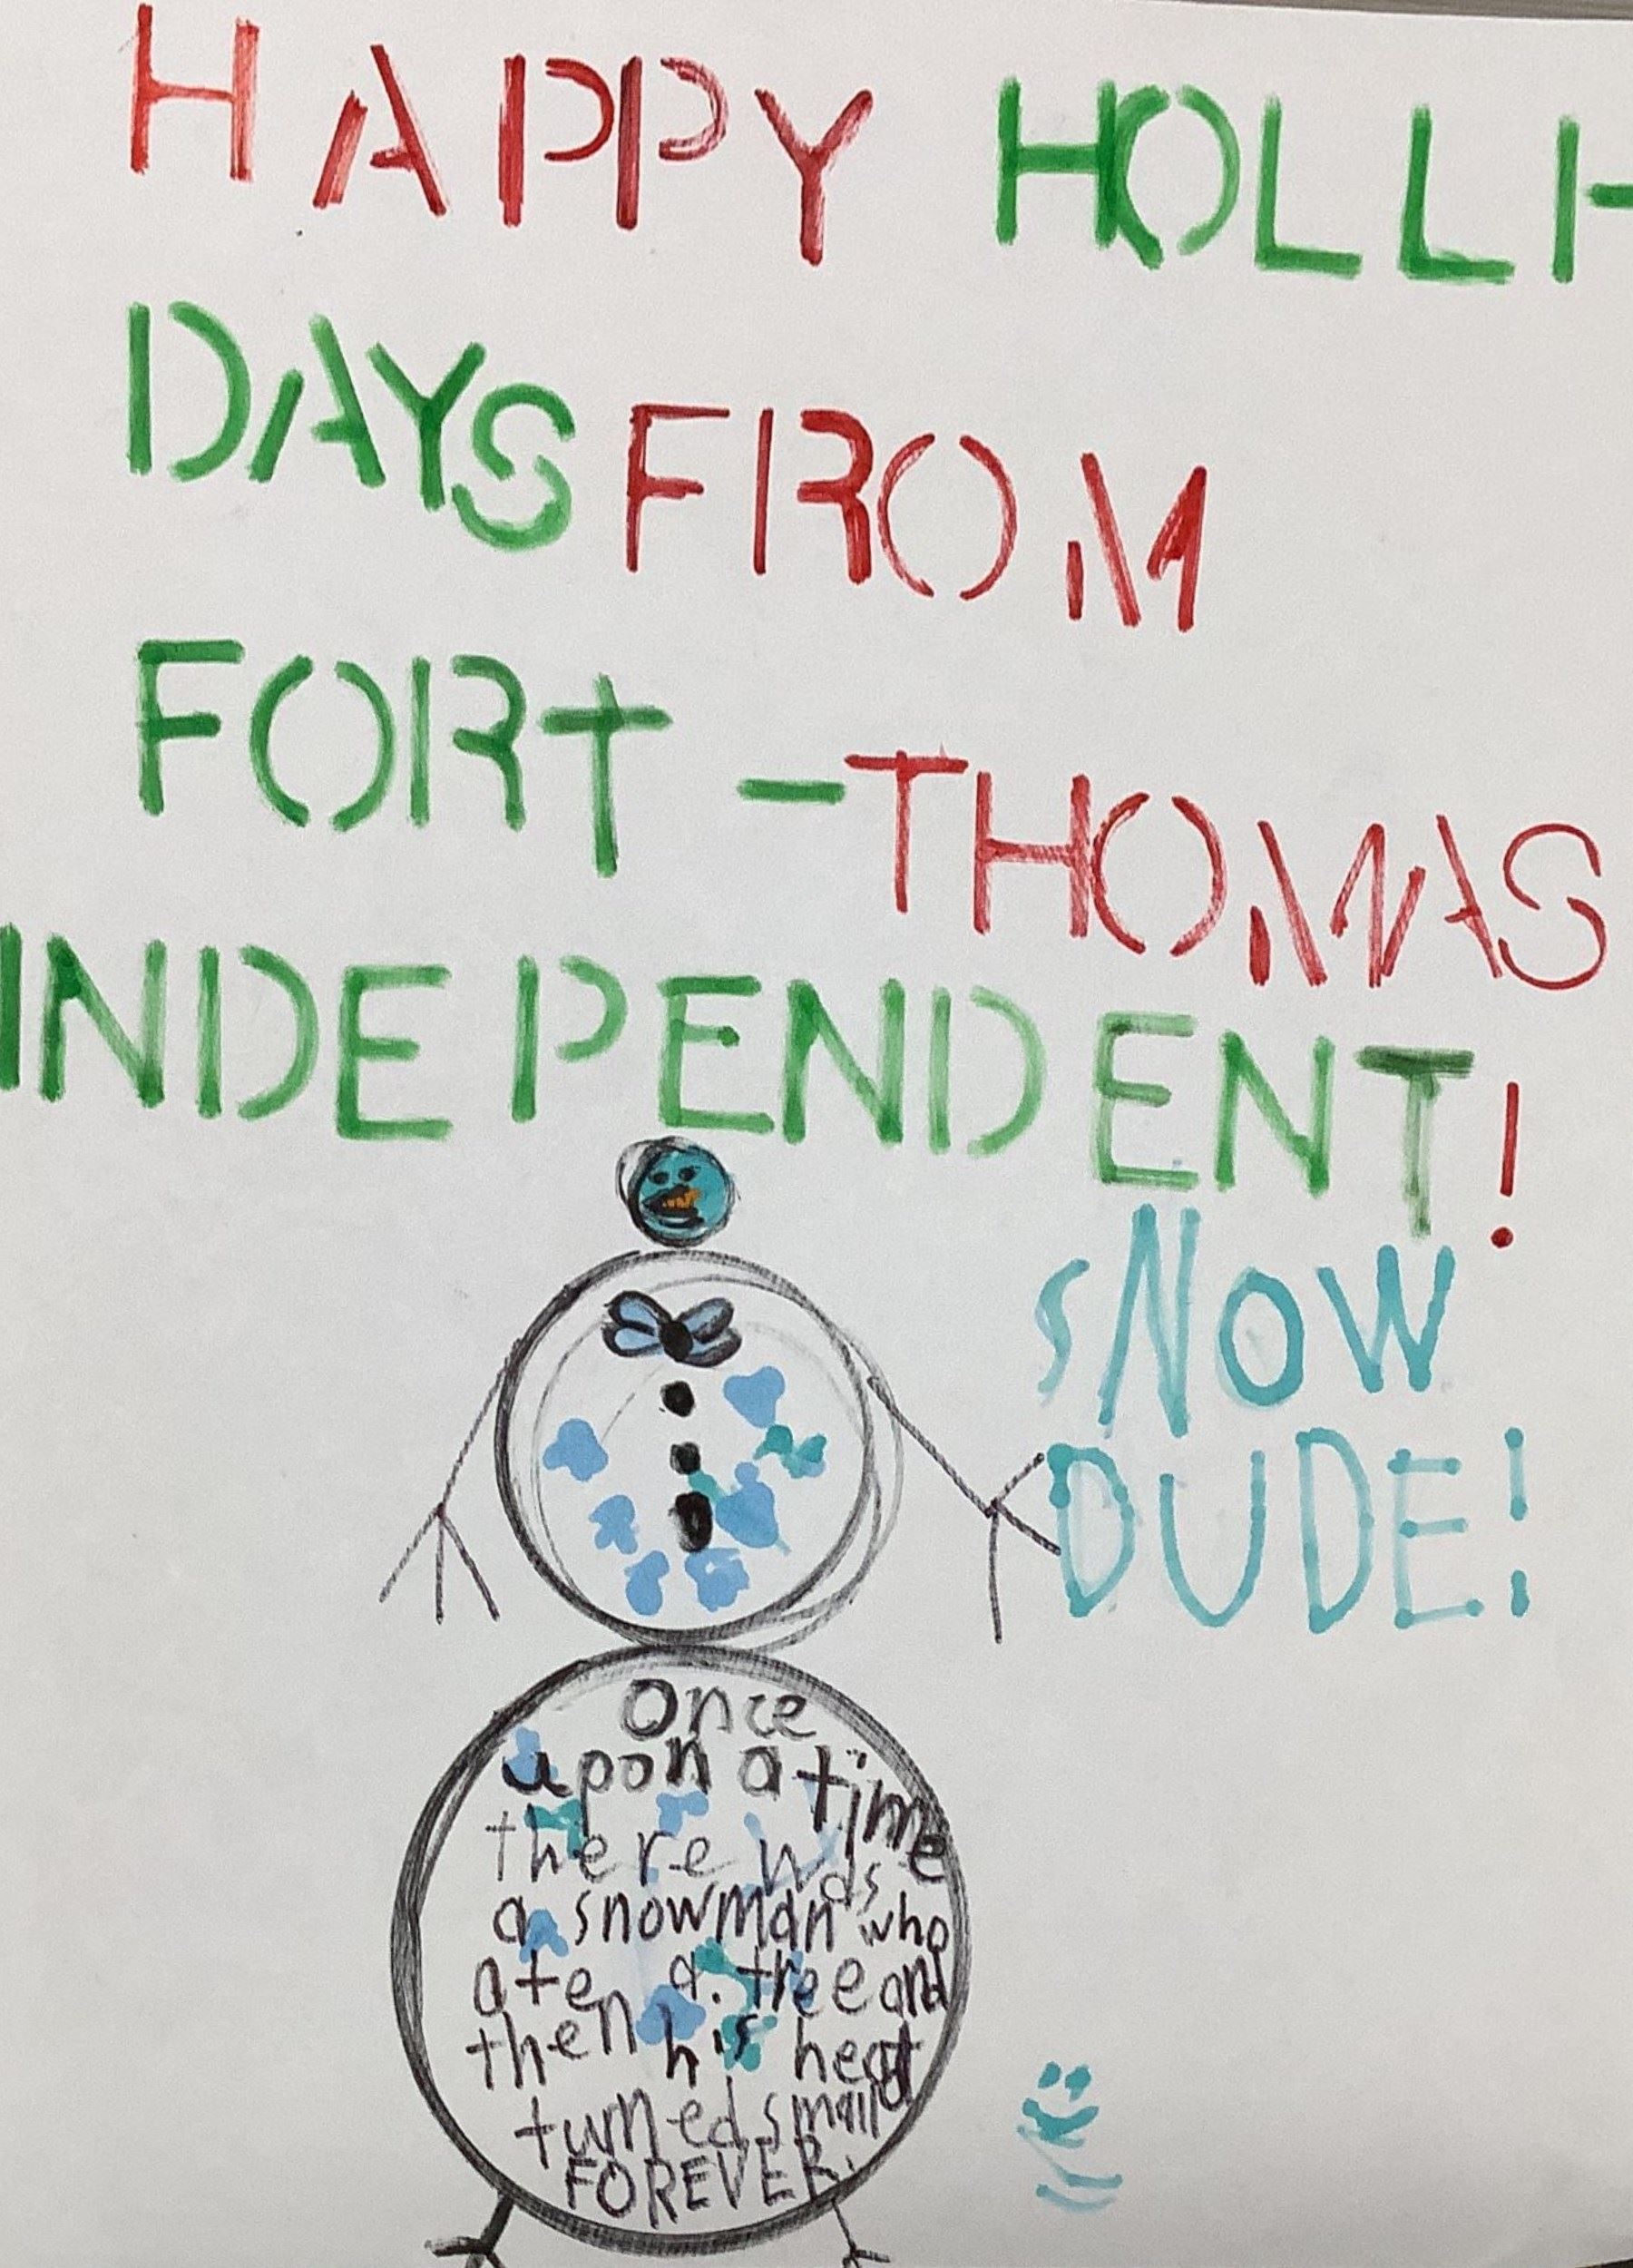 HAPPY HOLLI-
DAYS FROM
FORT-THOMAS
INDEPENDENT!
SNOW
DUDE!
Once
upon a time
there was
a snowman who
ate a. tree and
then his head
turned small
FOREVER.